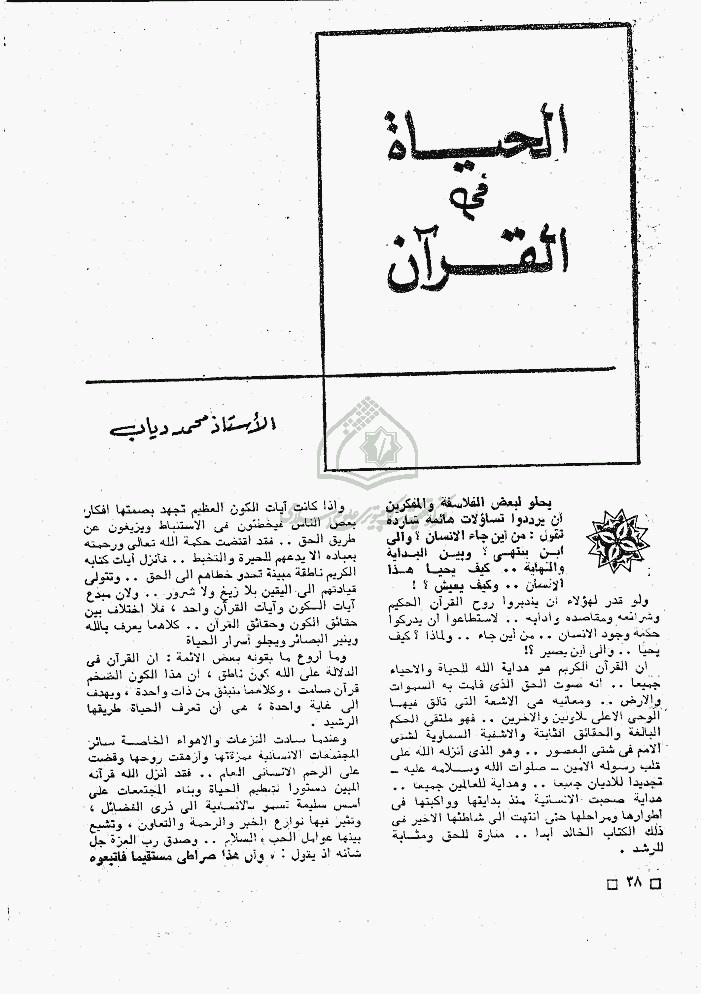 الحياة
في
القرآن
الأستاذ محمد دياب
يحلو لبعض الفلاسفة والمفكرين
أن يرددوا تساؤلات هائمة شاردة
تقول : من أين جاء الانسان ؟ والى
اين ينتهى ؟ وبين البداية
والنهاية .. كيف يحيا هذا
الانسان .. وكيف يعيش ؟ !
ولو قدر لهؤلاء أن يتدبروا روح القرآن الحكيم
وشرائعه ومقاصده وآدابه .. لاستطاعوا أن يدركوا
حكمة وجود الانسان .. من أين جاء .. ولماذا ؟ كيف
يحيا .. والى أين يصير ؟!
ان القرآن الكريم هو هداية الله للحياة والاحياء
جميعا .. انه صوت الحق الذى قامت به السموات
والارض .. ومعانيه هى الاشعة التى تألق فيها
الوحى الاعلى للاولين والآخرين .. فهو ملتقى الحكم
البالغة والحقائق الثابتة والاشفية السماوية لشتى
الامم فى شتى العصور .. وهو الذى أنزله الله على
قلب رسوله الامين – صلوات الله وسلامه عليه –
تجديدا للأديان جميعا .. وهداية للعالمين جميعا ..
هداية صحبت الانسانية منذ بدايتها وواكبتها فى
أطوارها ومراحلها حتى انتهت الى شاطئها الاخير فى
ذلك الكتاب الخالد أبدا .. منارة للحق ومثابة
للرشد .
واذا كانت آيات الكون العظيم تجهد بصمتها أفكار
بعض الناس فيخطئون فى الاستنباط ويزيغون عن
طريق الحق .. فقد اقتضت حكمة الله تعالى ورحمته
بعباده الا يدعهم للحيرة والتخبط .. فأنزل آيات كتابه
الكريم ناطقة مبينة تحدو خطاهم الى الحق .. وتتولى
قيادتهم الى اليقين بلا زيغ ولا شرور .. ولان مبدع
آيات الكون وآيات القرآن واحد ، فلا اختلاف بين
حقائق الكون وحقائق القرآن .. كلاهما يعرف بالله
وينير البصائر ويجلو أسرار الحياة
وما أروع ما يقوله بعض الائمة : ان القرآن فى
الدلالة على الله كون ناطق ، ان هذا الكون الضخم
قرآن صامت ، وكلاهما منبثق من ذات واحدة ، ويهدف
الى غاية واحدة ، هى أن تعرف الحياة طريقها
الرشيد .
وعندما سادت النزعات والاهواء الخاصة سائر
المجتمعات الانسانية فمزقتها وأزهقت روحها وقضت
على الرحم الانسانى العام .. فقد أنزل الله قرآنه
المبين دستورا لتنظيم الحياة وبناء المجتمعات على
أسس سليمة تسمو بالانسانية الى ذرى الفضائل ،
وتثير فيها نوازع الخير والرحمة والتعاون ، وتشيع
بينها عوامل الحب والسلام .. وصدق رب العزة جل
شأنه اذ يقول : « وأن هذا صراطى مستقيما فاتبعوه
٣٨